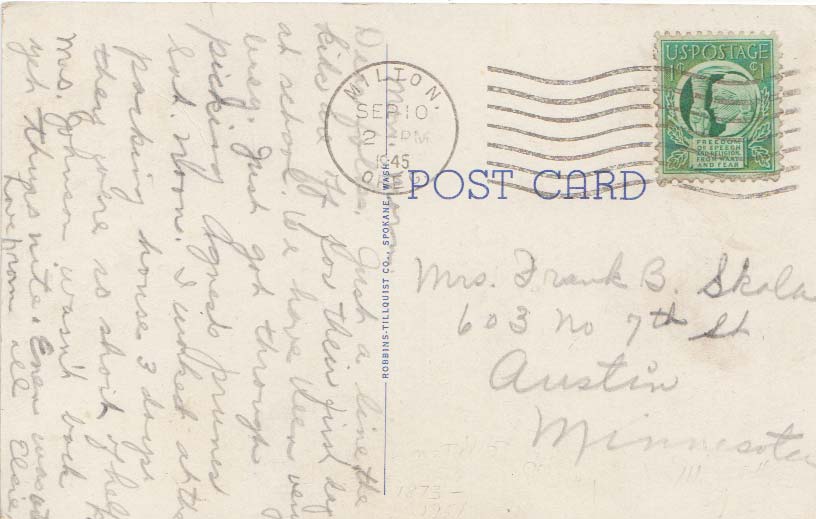 Mon. morn
Dear folks. Just a line, the
kids are off for their first day
at school. We have been very
busy. Just got through
picking Agnes prunes
Sat. Noon. I worked at the
packing house 3 days
they were so short of help
Mrs. Johnson wasn't back
yet thurs nite.
Love from all Elsie
ROBBINS-TILLQUIST CO., SPOKANE, WASH.
MILTON,
SEP 10
2 PM
1945
POST CARD
U.S. POSTAGE
1¢ ¢1
FREEDOM
OF SPEECH
AND RELIGION,
FROM WANT
AND FEAR
Mrs. Frank B. Skala
603 No 7th St
Austin
Minnesota
1873-
1951